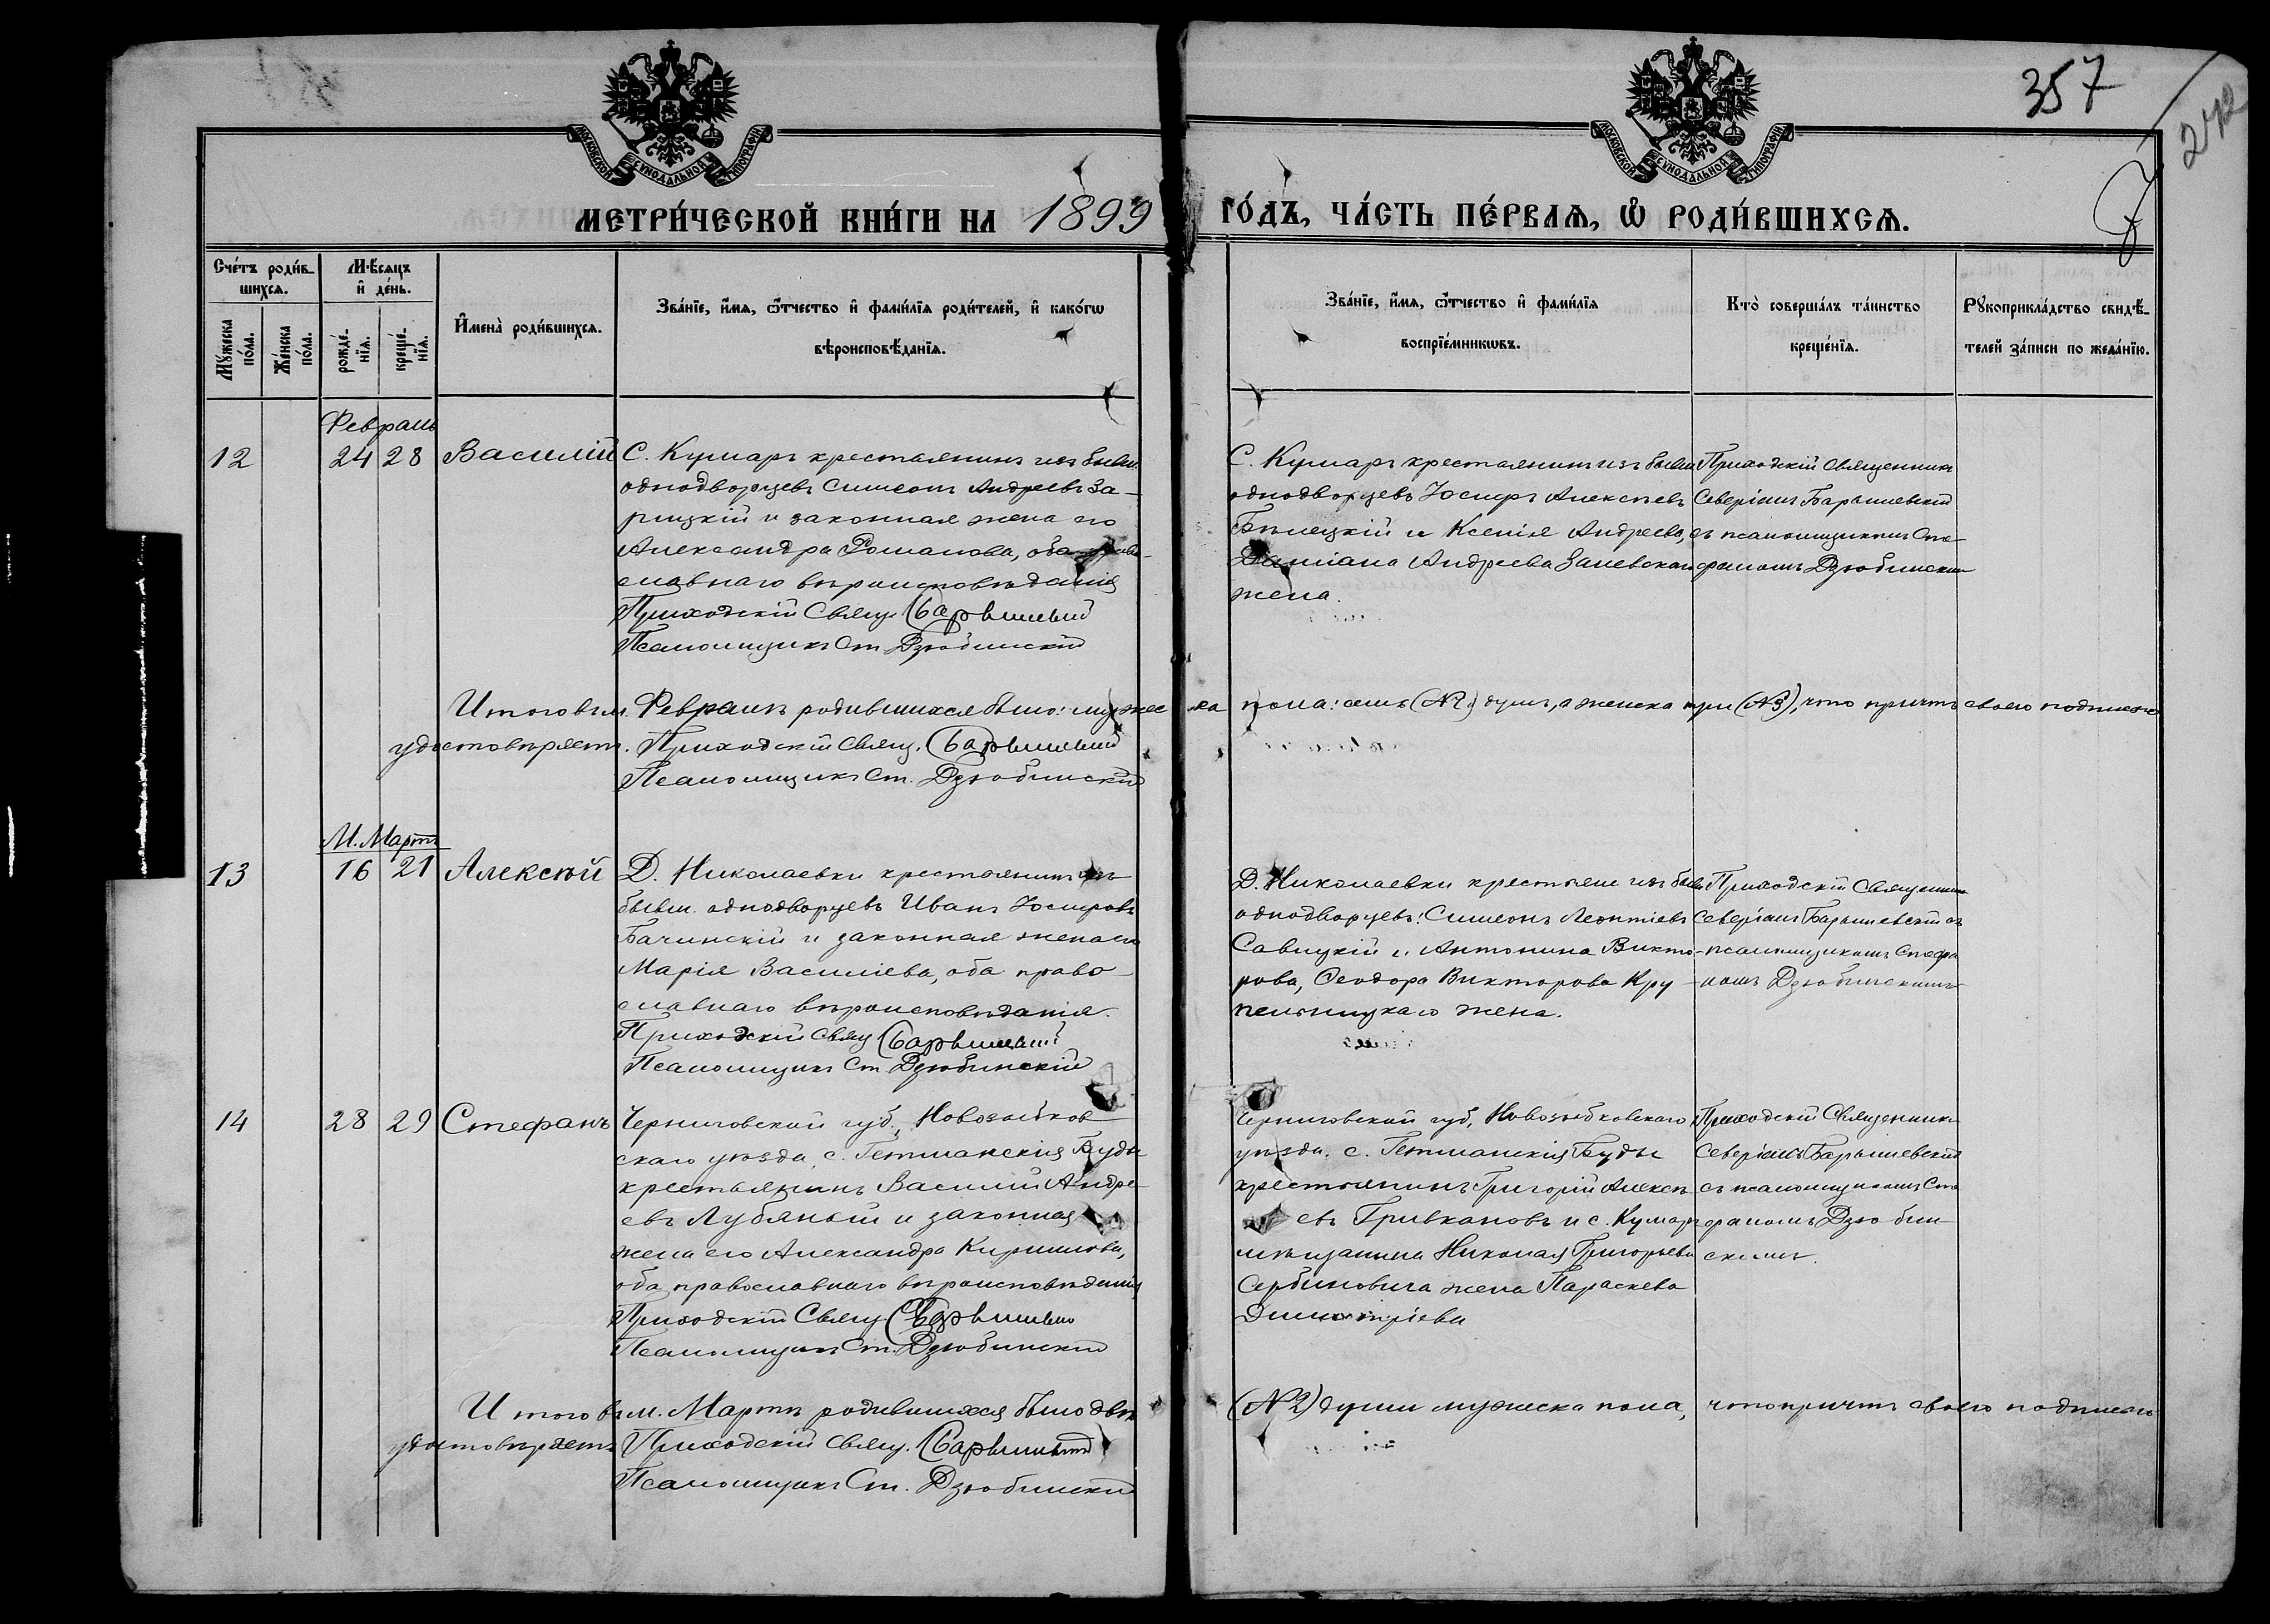 357
272
7
МОСКОВСКОЙ СѴНОДАЛЬНОЙ ТИПОГРАФІИ
МОСКОВСКОЙ СѴНОДАЛЬНОЙ ТИПОГРАФІИ
МЕТРИ́ЧЕСКОЙ КНИ́ГИ НА 1899 ГО́ДЪ, ЧА́СТЬ ПЕ́РВАѦ, Ѡ҆ РОДИ́ВШИХСѦ.
Сче́тъ роди́в-
шихсѧ.
Мѣ́сѧцъ
и҆ де́нь.
Мꙋ́жеска
по́ла.
Же́нска
по́ла.
рожде́-
нїѧ.
креще́-
нїѧ.
И҆мена̀ роди́вшихсѧ.
Зва́нїе, и҆́мѧ, ѻ҆́тчество и҆ фами́лїѧ роди́телей, и҆ како́гѡ
вѣроисповѣ́данїѧ.
Зва́нїе, и҆́мѧ, ѻ҆́тчество и҆ фами́лїѧ
воспрїе́мникѡвъ.
Кто̀ соверша́лъ та́инство
креще́нїѧ.
Рꙋкоприкла́дство свидѣ́-
телей за́писи по жела́нїю.
Февраль
12 24 28 Василій
С. Кумаръ крестьянинъ изъ бывш.
однодворцевъ Симеонъ Андреевъ За-
рицкій и законная жена его
Александра Романова, оба право-
славнаго вѣроисповѣданія
Приходскій Свящ. Барышевскій
Псаломщикъ Ст. Дзюбинскій
С. Кумаръ крестьянинъ изъ бывш
однодворцевъ Іосифъ Алексѣевъ
и Ксенія Андреева,
Даміана Андреева Залевскаго
жена.
Приходскій Священникъ
Северіанъ Барышевскій
съ псаломщикомъ Сте-
фаномъ Дзюбинским
Итого въ м. Февралѣ родившихся было: мужеска пола: семь (№ 7) душъ, а женска три (№ 3), что причтъ своею подписью
удостовѣряетъ. Приходскій Свящ. Барышевскій
Псаломщикъ Ст. Дзюбинскій
М. Мартъ
13 16 21 Алексѣй
Д. Николаевки крестьянинъ изъ
бывш. однодворцевъ Иванъ Іосифовъ
Бачинскій и законная жена его
Марія Василіева, оба право-
славнаго вѣроисповѣданія.
Приходскій Свящ Барышевскій
Псаломщикъ Ст Дзюбинскій
Д. Николаевки крестьяне изъ бывш
однодворцевъ: Симеонъ Леонтіевъ
Савицкій и Антонина Викто-
рова, Ѳеодора Викторова Кру-
пельницкаго жена.
Приходскій Священникъ
Северіанъ Барышевскій съ
псаломщикомъ Стефа
номъ Дзюбинскимъ
14 28 29 Стефанъ
Черниговской губ., Новозыбков-
скаго уѣзда, с. Гетманскія Буды
крестьянинъ Василій Андре-
евъ Лубяный и законная
жена его Александра Кириллова,
оба православнаго вѣроисповѣданія
Приходскій Свящ. Барышевскій
Псаломщикъ Ст. Дзюбинскій
Черниговской губ, Новозыбковскаго
уѣзда. с. Гетманскія Буды
крестьянинъ Григорій Алексѣ-
евъ Гривкановъ и с. Кумаръ
мѣщанина Николая Григорьева
Сербиновича жена Параскева
Димитріева
Приходскій Священникъ
Северіанъ Барышевскій
съ псаломщикомъ Сте
фаномъ Дзюбин-
скимъ.
Итого въ м. Мартѣ родившихся было двѣ (№ 2) души мужеска пола, что причтъ своею подписью
удостовѣряетъ Приходскій Свящ. Барышевскій
Псаломщикъ Ст. Дзюбинскій